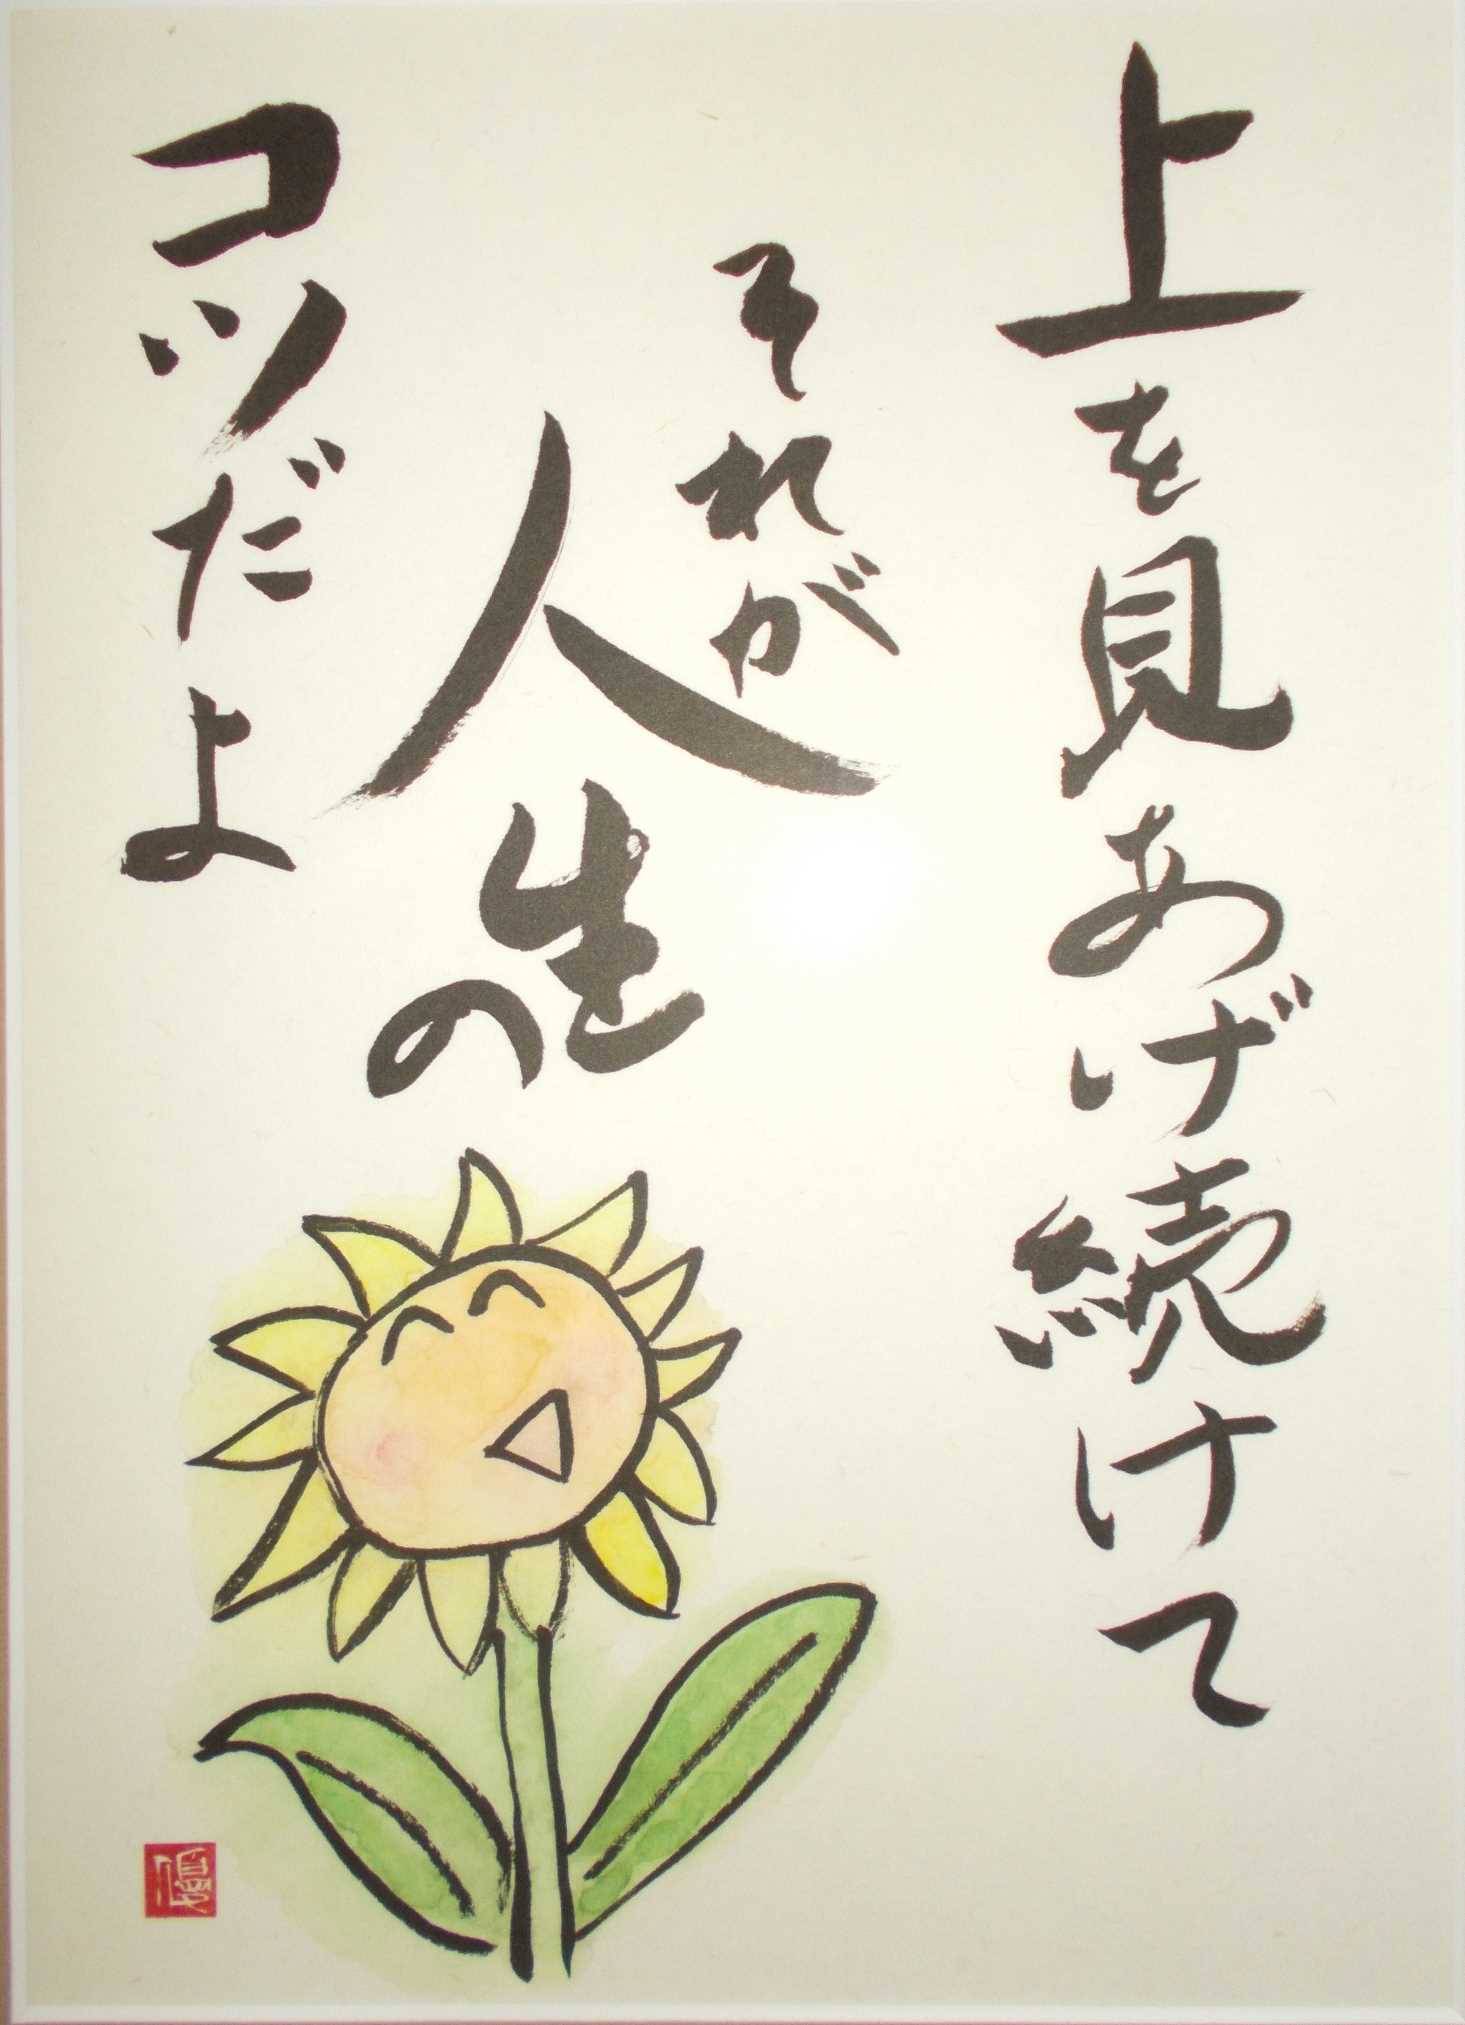 上を見あげ続けて
それが
人生の
コツだよ
優